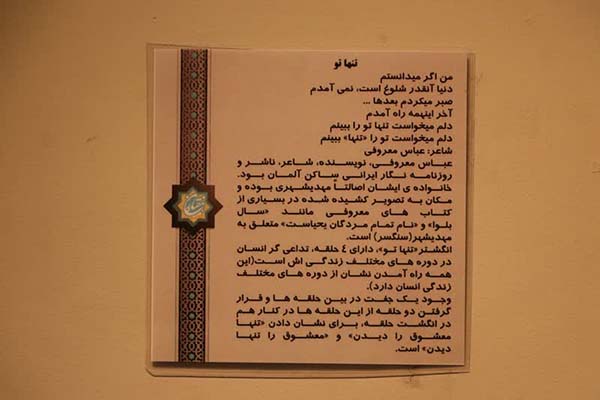 تنها تو
من اگر میدانستم
دنیا آنقدر شلوغ است، نمی آمدم
صبر میکردم بعدها ...
آخر اینهمه راه آمدم
دلم میخواست تنها تو را ببینم
دلم میخواست تو را «تنها» ببینم
شاعر: عباس معروفی
عباس معروفی، نویسنده، شاعر، ناشر و
روزنامه نگار ایرانی ساکن آلمان بود.
خانواده ی ایشان اصالتاً مهدیشهری بوده و
مکان به تصویر کشیده شده در بسیاری از
کتاب های معروفی مانند «سال
بلوا» و «نام تمام مردگان یحیاست» متعلق به
مهدیشهر(سنگسر) است.
انگشتر«تنها تو»، دارای ٤ حلقه، تداعی گر انسان
در دوره های مختلف زندگی اش است(این
همه راه آمدن نشان از دوره های مختلف
زندگی انسان دارد).
وجود یک جفت در بین حلقه ها و قرار
گرفتن دو حلقه از این حلقه ها در کنار هم
در انگشت حلقه، برای نشان دادن «تنها
معشوق را دیدن» و «معشوق را تنها
دیدن» است.